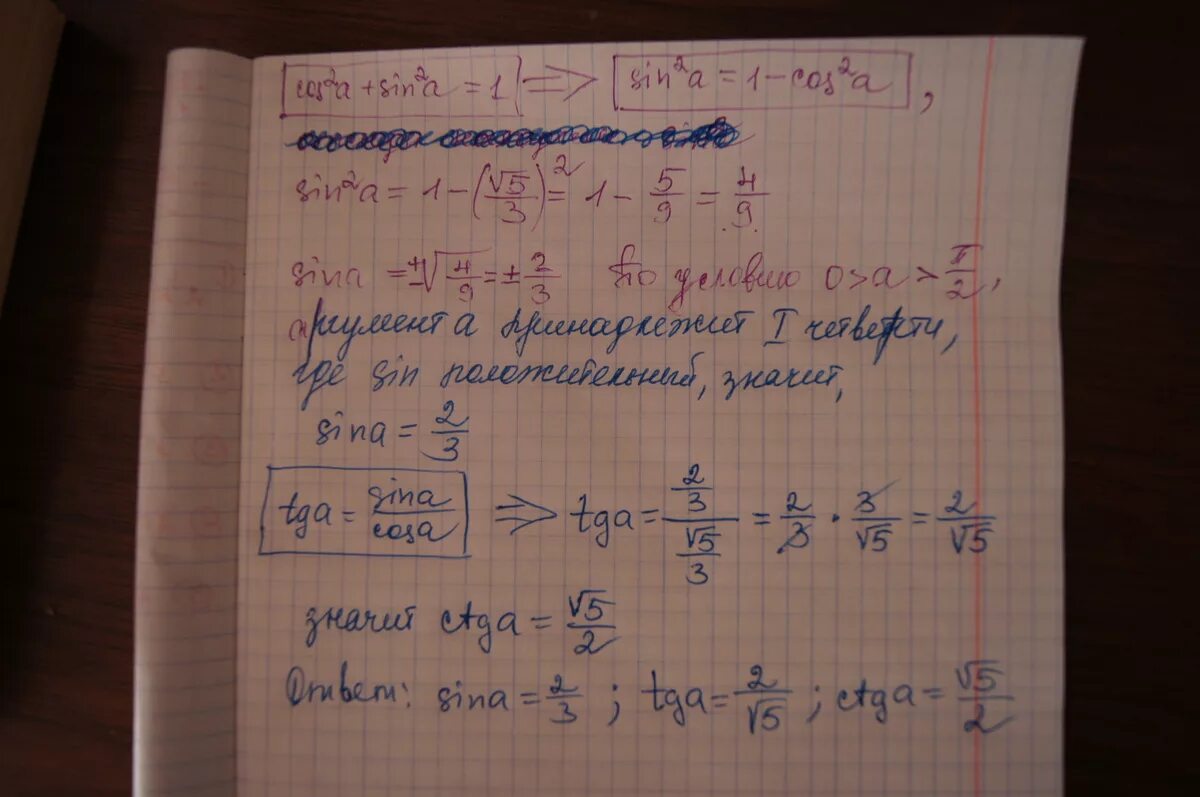 cos²a + sin²a = 1 ⇒ sin²a = 1 − cos²a,
sin²a = 1 − (√5/3)² = 1 − 5/9 = 4/9
sina = ±√4/9 = ± 2/3 По условию 0 > a > π/2,
аргумент a принадлежит I четверти,
где sin положительный, значит,
sina = 2/3
tga = sina/cosa ⇒ tga = (2/3)/(√5/3) = 2/3 · 3/√5 = 2/√5
значит ctga = √5/2
Ответ: sina = 2/3 ; tga = 2/√5 ; ctga = √5/2